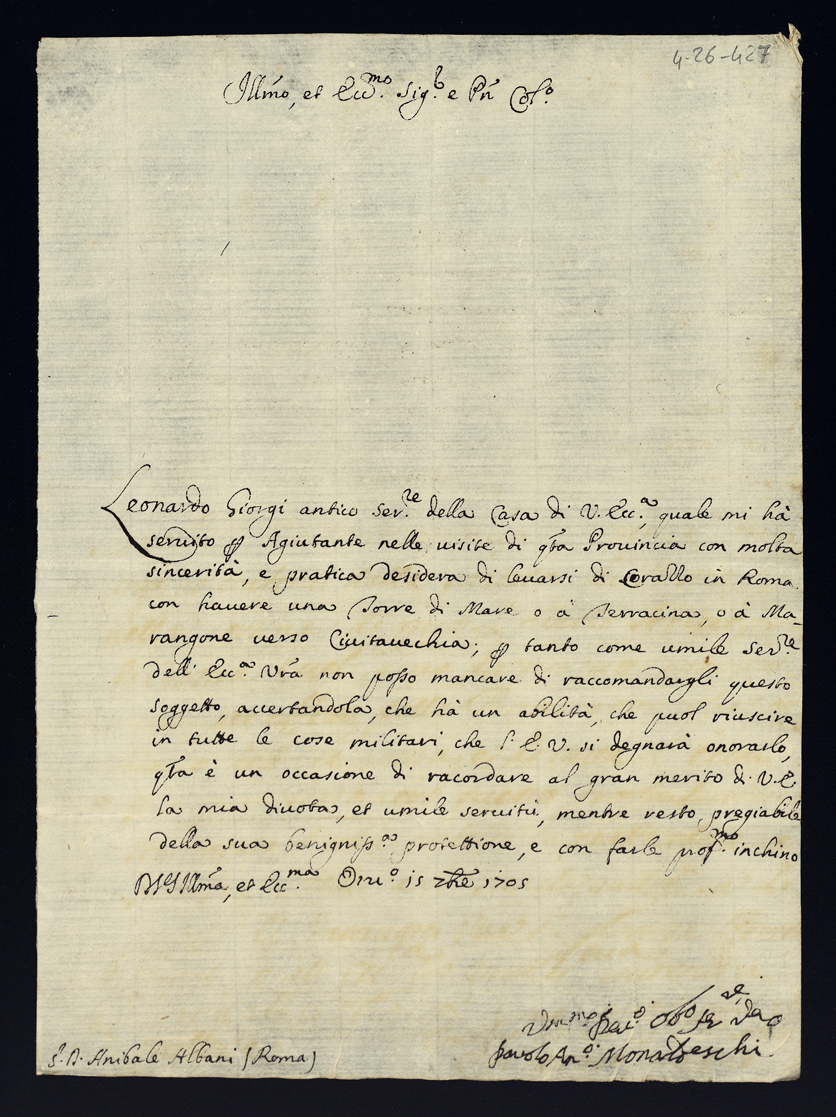 4-26-427
Illmo, et Ecc.mo Sig.r e Pñ Col.o
Leonardo Giorgi antico ser.re della Casa di V. Ecc.a, quale mi hà
servito ꝑ Agiutante nelle visite di qta Provincia con molta
sincerità, e pratica desidera di levarsi di in Roma
con havere una Torre di Mare o à Terracina, o à Ma-
rangone verso Civitavechia; ꝑ tanto come umile ser.re
dell' Ecc.a Vra non posso mancare di raccomandargli questo
soggetto, accertandola, che hà un abilità, che puol riuscire
in tutte le cose militari, che l' E. V. si degnarà onorarlo,
qta è un occasione di racordare al gran merito di V. E.
la mia divota, et umile servitù, mentre resto pregiabile
della sua benigniss.a protettione, e con farle prof.mo inchino
Illma, et Ecc.ma Orv.o 15 7bre 1705
Monaldeschi
S. D. Anibale Albani (Roma)